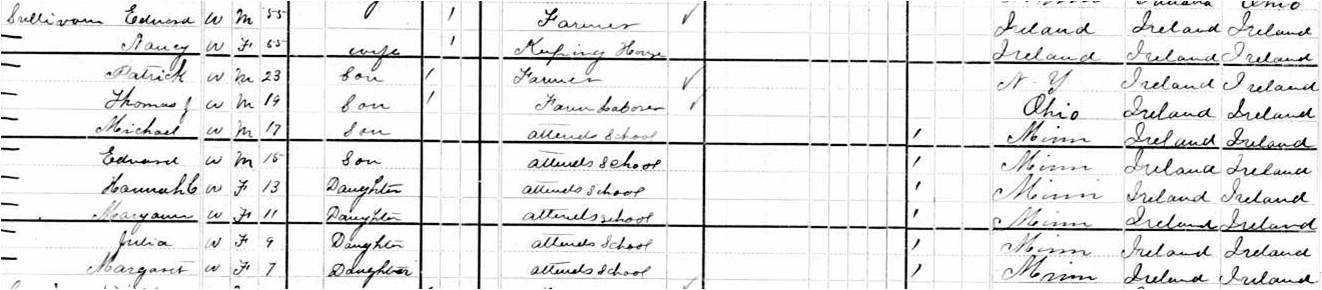 Ohio
Sullivan Edward W M 55 / Farmer ✓ Ireland Ireland Ireland
— Nancy W F 55 wife / Keeping House Ireland Ireland Ireland
— Patrick W M 23 Son / Farmer ✓ N-Y Ireland Ireland
— Thomas J W M 19 Son / Farm Laborer ✓ Ohio Ireland Ireland
— Michael W M 17 Son attends School / Minn Ireland Ireland
— Edward W M 15 Son attends School / Minn Ireland Ireland
— Hannah C W F 13 Daughter attends School / Minn Ireland Ireland
— Maryann W F 11 Daughter attends School / Minn Ireland Ireland
— Julia W F 9 Daughter attends School / Minn Ireland Ireland
— Margaret W F 7 Daughter attends School / Minn Ireland Ireland